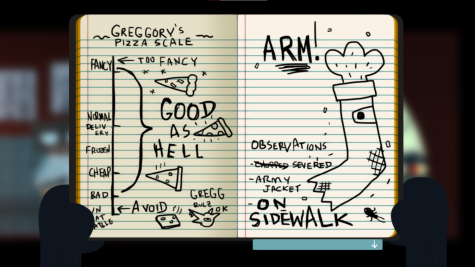 GREGGORY'S
PIZZA SCALE
FANCY
← TOO FANCY
GOOD
AS
HELL
NORMAL
DELIV
ERY
FROZEN
CHEAP
BAD
← AVOID
GREGG
RULZ
OK
IN
ARM!
OBSERVATIONS
- CHOPPED SEVERED
- ARMY
JACKET
- ON
SIDEWALK